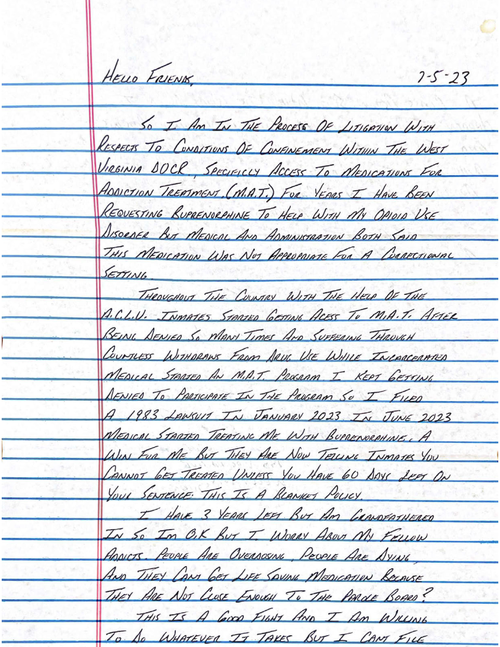 Hello Friends,
7-5-23
So I Am In The Process Of Litigation With
Respects To Conditions Of Confinement Within The West
Virginia DOCR, Specificly Access To Medications For
Addiction Treatment.(M.A.T.) For Years I Have Been
Requesting Buprenorphine To Help With My Opioid Use
Disorder But Medical And Administration Both Said
This Medication Was Not Appropriate For A Correctional
Setting
Throughout The Country With The Help Of The
A.C.L.U. Inmates Started Getting Acess To M.A.T. After
Being Denied So Many Times And Suffering Through
Countless Withdraws From Drug Use While Incarcerated
Medical Started An M.A.T. Program I Kept Getting
Denied To Participate In The Program So I Filed
A 1983 Lawsuit In January 2023 In June 2023
Medical Started Treating Me With Buprenorphine. A
Win For Me But They Are Now Telling Inmates You
Cannot Get Treated Unless You Have 60 Days Left On
Your Sentence This Is A Blanket Policy.
I Have 3 Years Left But Am Grandfathered
In So Im O.K But I Worry About My Fellow
Addicts. People Are Overdosing, People Are Dying,
And They Cant Get Life Saving Medication Because
They Are Not Close Enough To The Parole Board?
This Is A Good Fight And I Am Willing
To Do Whatever It Takes But I Cant File